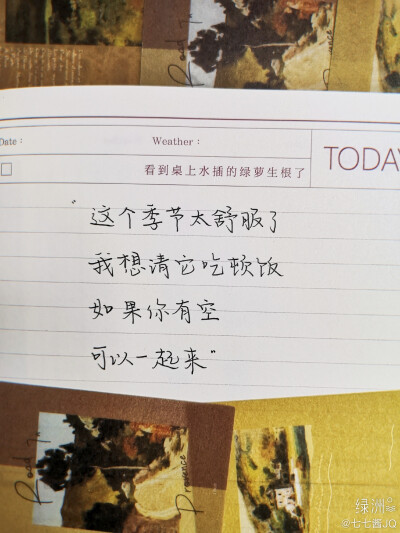 Road To
Date：
Weather：
TODAY
看到桌上水插的绿萝生根了
“这个季节太舒服了
我想请它吃顿饭
如果你有空
可以一起来”
Provence
绿洲
@七七酱JQ